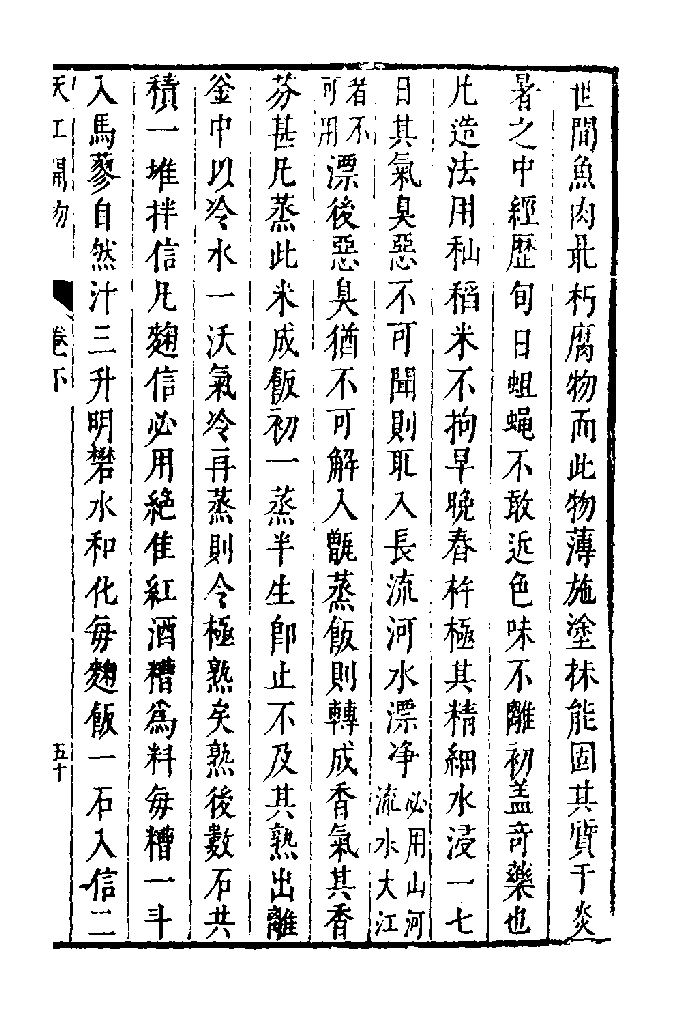 世間魚肉最朽腐物而此物薄施塗抹能固其質于炎
暑之中經歷旬日蛆蠅不敢近色味不離初蓋奇藥也
凡造法用秈稻米不拘早晚舂杵極其精細水浸一七
日其氣臭惡不可聞則取入長流河水漂净必用山河流水大江
者不可用漂後惡臭猶不可解入甑蒸飯則轉成香氣其香
芬甚凡蒸此米成飯初一蒸半生卽止不及其熟出離
釜中以冷水一沃氣冷再蒸則令極熟矣熟後數石共
積一堆拌信凡麹信必用絶佳紅酒糟爲料每糟一斗
入馬蓼自然汁三升明礬水和化每麹飯一石入信二
天工開物 卷下 五十